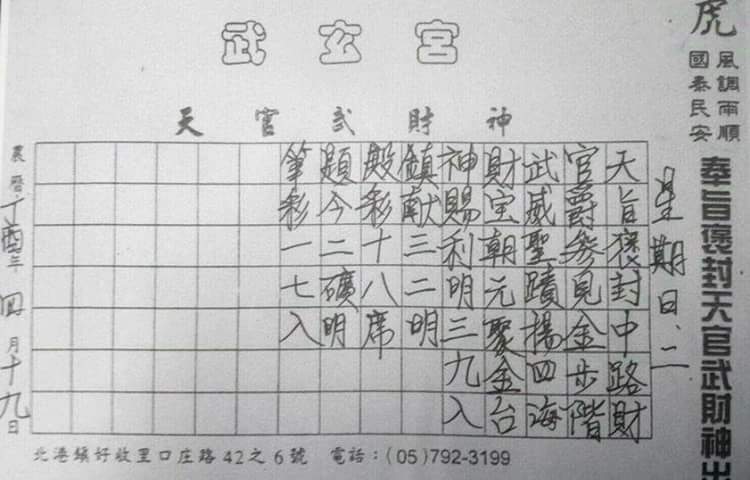 武玄宮
天官武財神
虎
風調雨順
國泰民安
奉旨褒封天官武財神出
星期日、二
天旨褒封中路財
官爵參見金步階
武威聖蹟揚四海
財宝朝元聚金台
神賜利明三九入
鎮献三二明
殿彩十八席
題今二礦明
筆彩一七入
農曆丁酉年四月十九日
北港鎮好收里口庄路42之6號 電話：(05)792-3199